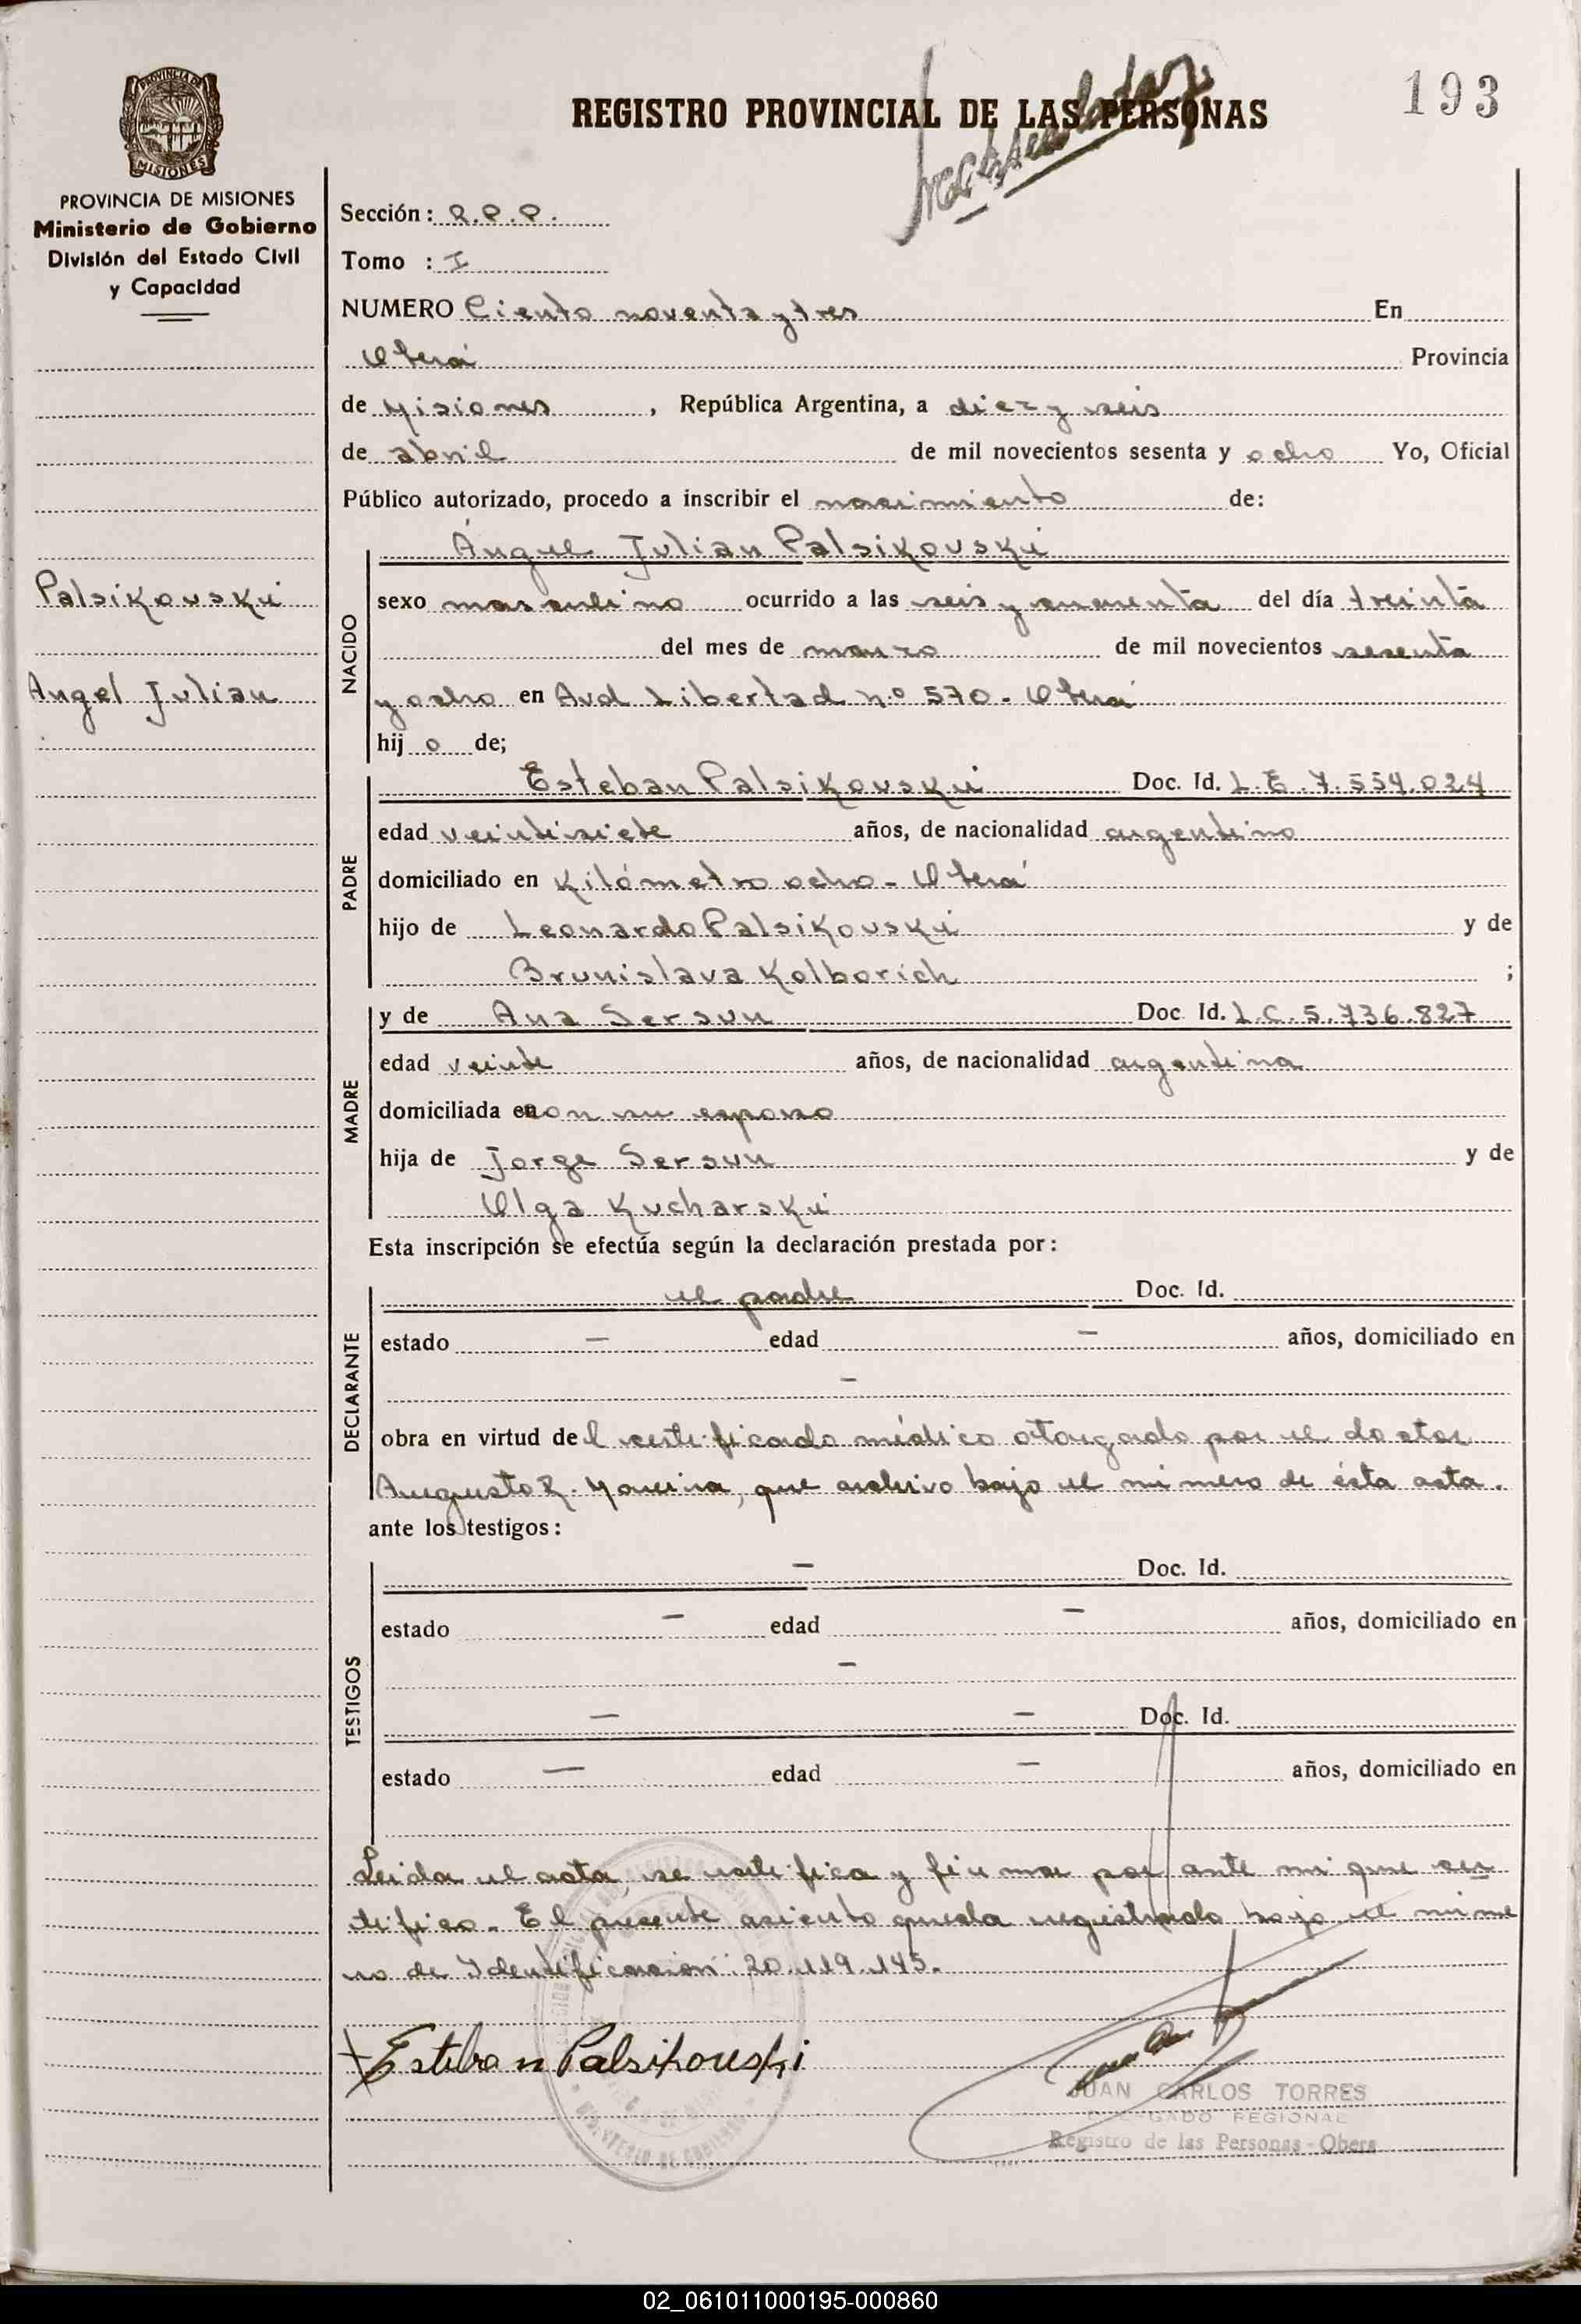 REGISTRO PROVINCIAL DE LAS PERSONAS
193
PROVINCIA DE MISIONES
MISIONES
PROVINCIA DE MISIONES
Ministerio de Gobierno
División del Estado Civil
y Capacidad
Palsikovski
Angel Julian
Sección: R.P.P.
Tomo : I
NUMERO Ciento noventa y tres En
Oberá Provincia
de Misiones , República Argentina, a diez y seis
de abril de mil novecientos sesenta y ocho Yo, Oficial
Público autorizado, procedo a inscribir el nacimiento de:
NACIDO
Ángel Julian Palsikovski
sexo masculino ocurrido a las seis y cuarenta del día treinta
del mes de marzo de mil novecientos sesenta
y ocho en Avd Libertad n.º 570 - Oberá
hij o de;
PADRE
Esteban Palsikovski Doc. Id. L.E. 7.554.024
edad veintisiete años, de nacionalidad argentino
domiciliado en Kilómetro ocho - Oberá
hijo de Leonardo Palsikovski y de
Brunislava Kolborich ;
MADRE
y de Ana Sersun Doc Id. L.C. 5.736.827
edad veinte años, de nacionalidad argentina
domiciliada en con su esposo
hija de Jorge Sersun y de
Olga Kucharski
Esta inscripción se efectúa según la declaración prestada por:
DECLARANTE
el padre Doc. Id.
estado — edad — años, domiciliado en
—
obra en virtud de l certificado médico otorgado por el doctor
Augusto R. Moreira, que archivo bajo el número de ésta acta.
ante los testigos:
TESTIGOS
— Doc. Id.
estado — edad — años, domiciliado en
—
— — Doc. Id.
estado — edad — años, domiciliado en
Leida el acta, se ratifica y firma por ante mi que cer
tifico. El presente asiento queda registrado bajo el núme
ro de Identificación: 20.119.145.
Esteban Palsikouski
JUAN CARLOS TORRES
DELEGADO REGIONAL
Registro de las Personas - Obera
02_061011000195-000860